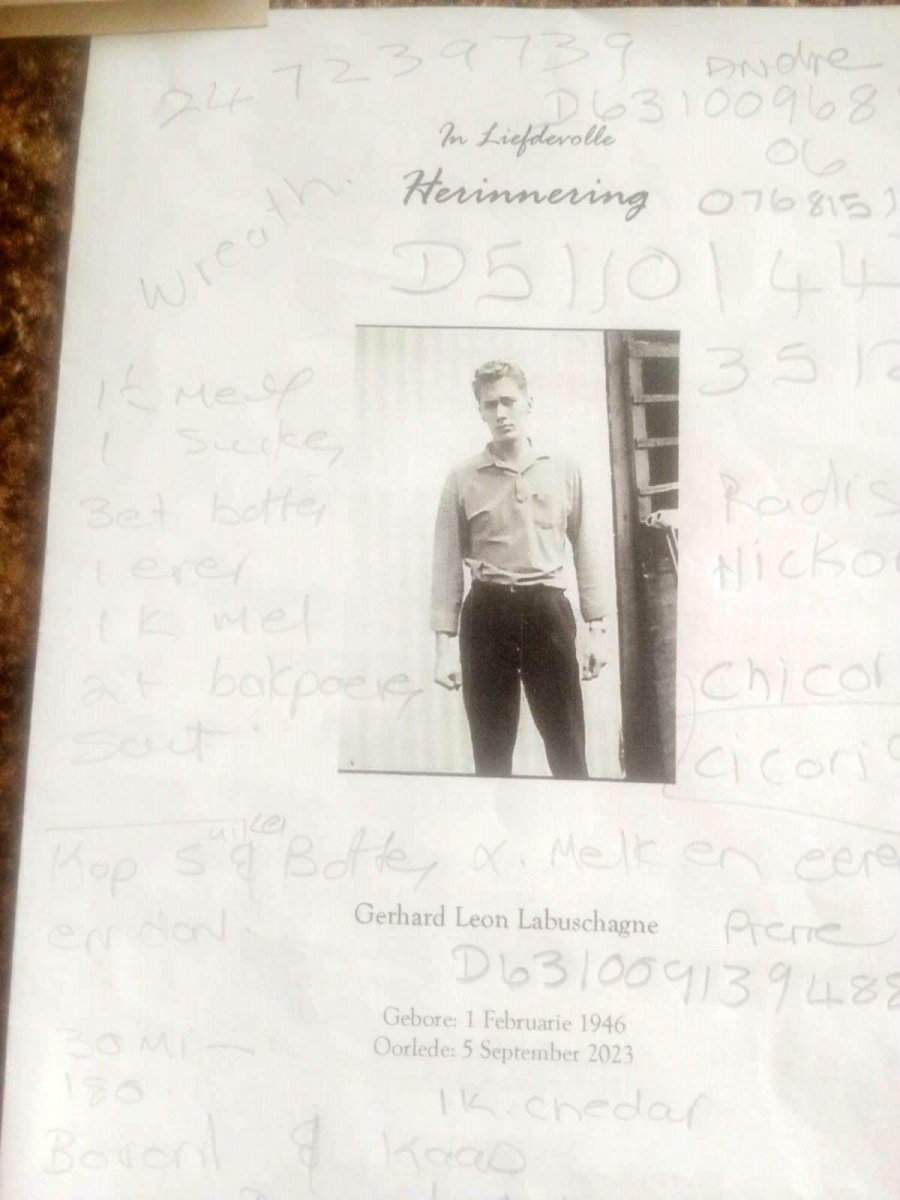 247239739 Andre
D63100968
In Liefdevolle
06
Herinnering
0768153
wreath.
D5110144
3512
1 t Melk
1 Suiker
3et botter
1 eier
1 K mel
2t bakpoeier
Sout
Radis
Hickor
Chicor
Cicori
Kop Suiker & Botter x. Melk en eere
en don.
Gerhard Leon Labuschagne
Pierre
D631009139488
Gebore: 1 Februarie 1946
Oorlede: 5 September 2023
30 Mi —
180
1K. chedar
Bovoril & Kaas